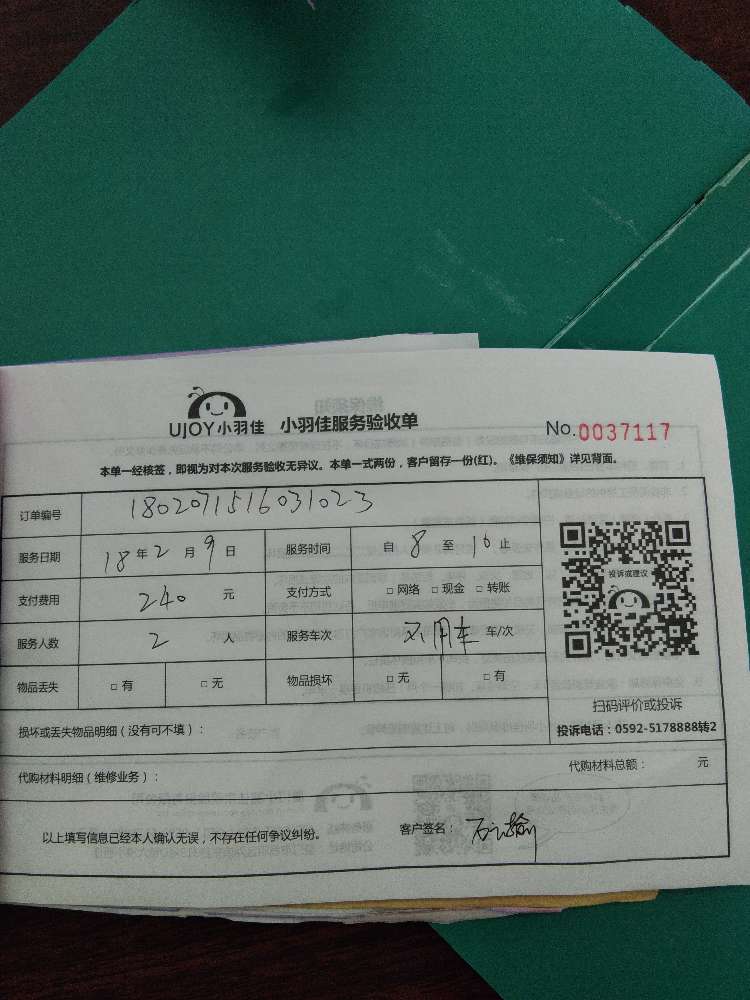 UJOY小羽佳 小羽佳服务验收单 No.0037117
本单一经核签，即视为对本次服务验收无异议。本单一式两份，客户留存一份(红)。《维保须知》详见背面。
订单编号 1802071516031023
服务日期 18年2月9日 服务时间 自8至16止
支付费用 240元 支付方式 □网络 □现金 □转账
投诉或建议
服务人数 2人 服务车次 不用车 车/次
物品丢失 □有 □无 物品损坏 □无 □有
扫码评价或投诉
损坏或丢失物品明细（没有可不填）： 投诉电话：0592-5178888转2
代购材料明细（维修业务）： 代购材料总额： 元
以上填写信息已经本人确认无误，不存在任何争议纠纷。 客户签名：